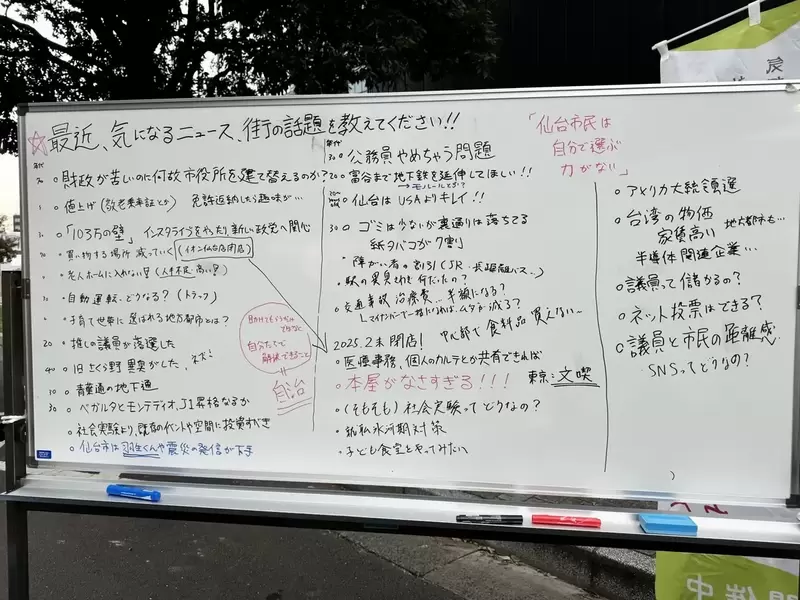 ☆最近、気になるニュース、街の話題を教えてください!!
年代
70 ○財政が苦しいのに何故市役所を建て替えるのか?
○値上げ(敬老乗車証とか) 免許返納したら趣味が…
○「103万の壁」 インスタライブをやったり、新しい政党へ関心
○買い物する場所 減っていく(イオン仙台店閉店)
○老人ホームに入れない?(人手不足・高い?)
30 ○自動運転、どうなる?(トラック)
○子育て世帯に選ばれる地方都市とは?
20 ○推しの議員が落選した
40 ○旧さくら野 異臭がした、ネズミ
30 ○青葉通の地下通
30 ○ベガルタとモンテディオ、J1昇格なるか
○社会実験より、既存のイベントや空間に投資すべき
○仙台市は羽生くんや震災の発信が下手
自分たちで
解決できること
=
自治
年代
30 ○公務員やめちゃう問題
20 ○富谷まで地下鉄を延伸してほしい!!
→モノレールとか?
○仙台はUSAよりキレイ!!
30 ○ゴミは少ないが裏通りは落ちてる
紙タバコが7割
○障がい者の割引(JR、長距離バス…)
○駅の異臭さわぎ何だったの?
○交通事故 治療費…半額になる?
2025.2末 閉店! 中心部で食料品買えない〜
○医療事務、個人のカルテとか共有できれば
○本屋がなさすぎる!!! 東京:文喫
○(そもそも)社会実験ってどうなの?
○就職氷河期対策
○子ども食堂をやってみたい
「仙台市民は
自分で選ぶ
力がない」
○アメリカ大統領選
○台湾の物価
家賃高い 地方都市も…
半導体関連企業…
○議員って儲かるの?
○ネット投票はできる?
○議員と市民の距離感
SNSってどうなの?
開催中